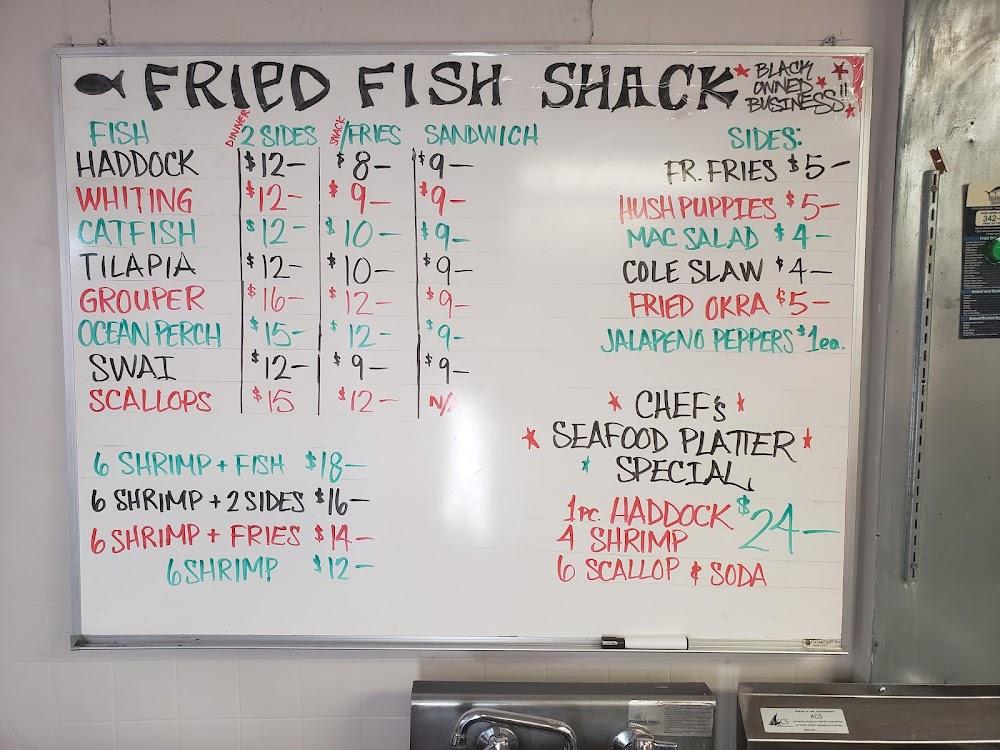 FRIED FISH SHACK
BLACK
OWNED
BUSINESS!!
FISH DINNER 2 SIDES SNACK /FRIES SANDWICH
HADDOCK $12- $8- $9-
WHITING $12- $9- $9-
CATFISH $12- $10- $9-
TILAPIA $12- $10- $9-
GROUPER $16- $12- $9-
OCEAN PERCH $15- $12- $9-
SWAI $12- $9- $9-
SCALLOPS $15 $12- N/A
6 SHRIMP + FISH $18-
6 SHRIMP + 2 SIDES $16-
6 SHRIMP + FRIES $14-
6 SHRIMP $12-
SIDES:
FR. FRIES $5-
HUSH PUPPIES $5-
MAC SALAD $4-
COLE SLAW $4-
FRIED OKRA $5-
JALAPENO PEPPERS $1ea.
CHEF's
SEAFOOD PLATTER
SPECIAL
1pc. HADDOCK $24-
4 SHRIMP
6 SCALLOP & SODA
342-
KCS